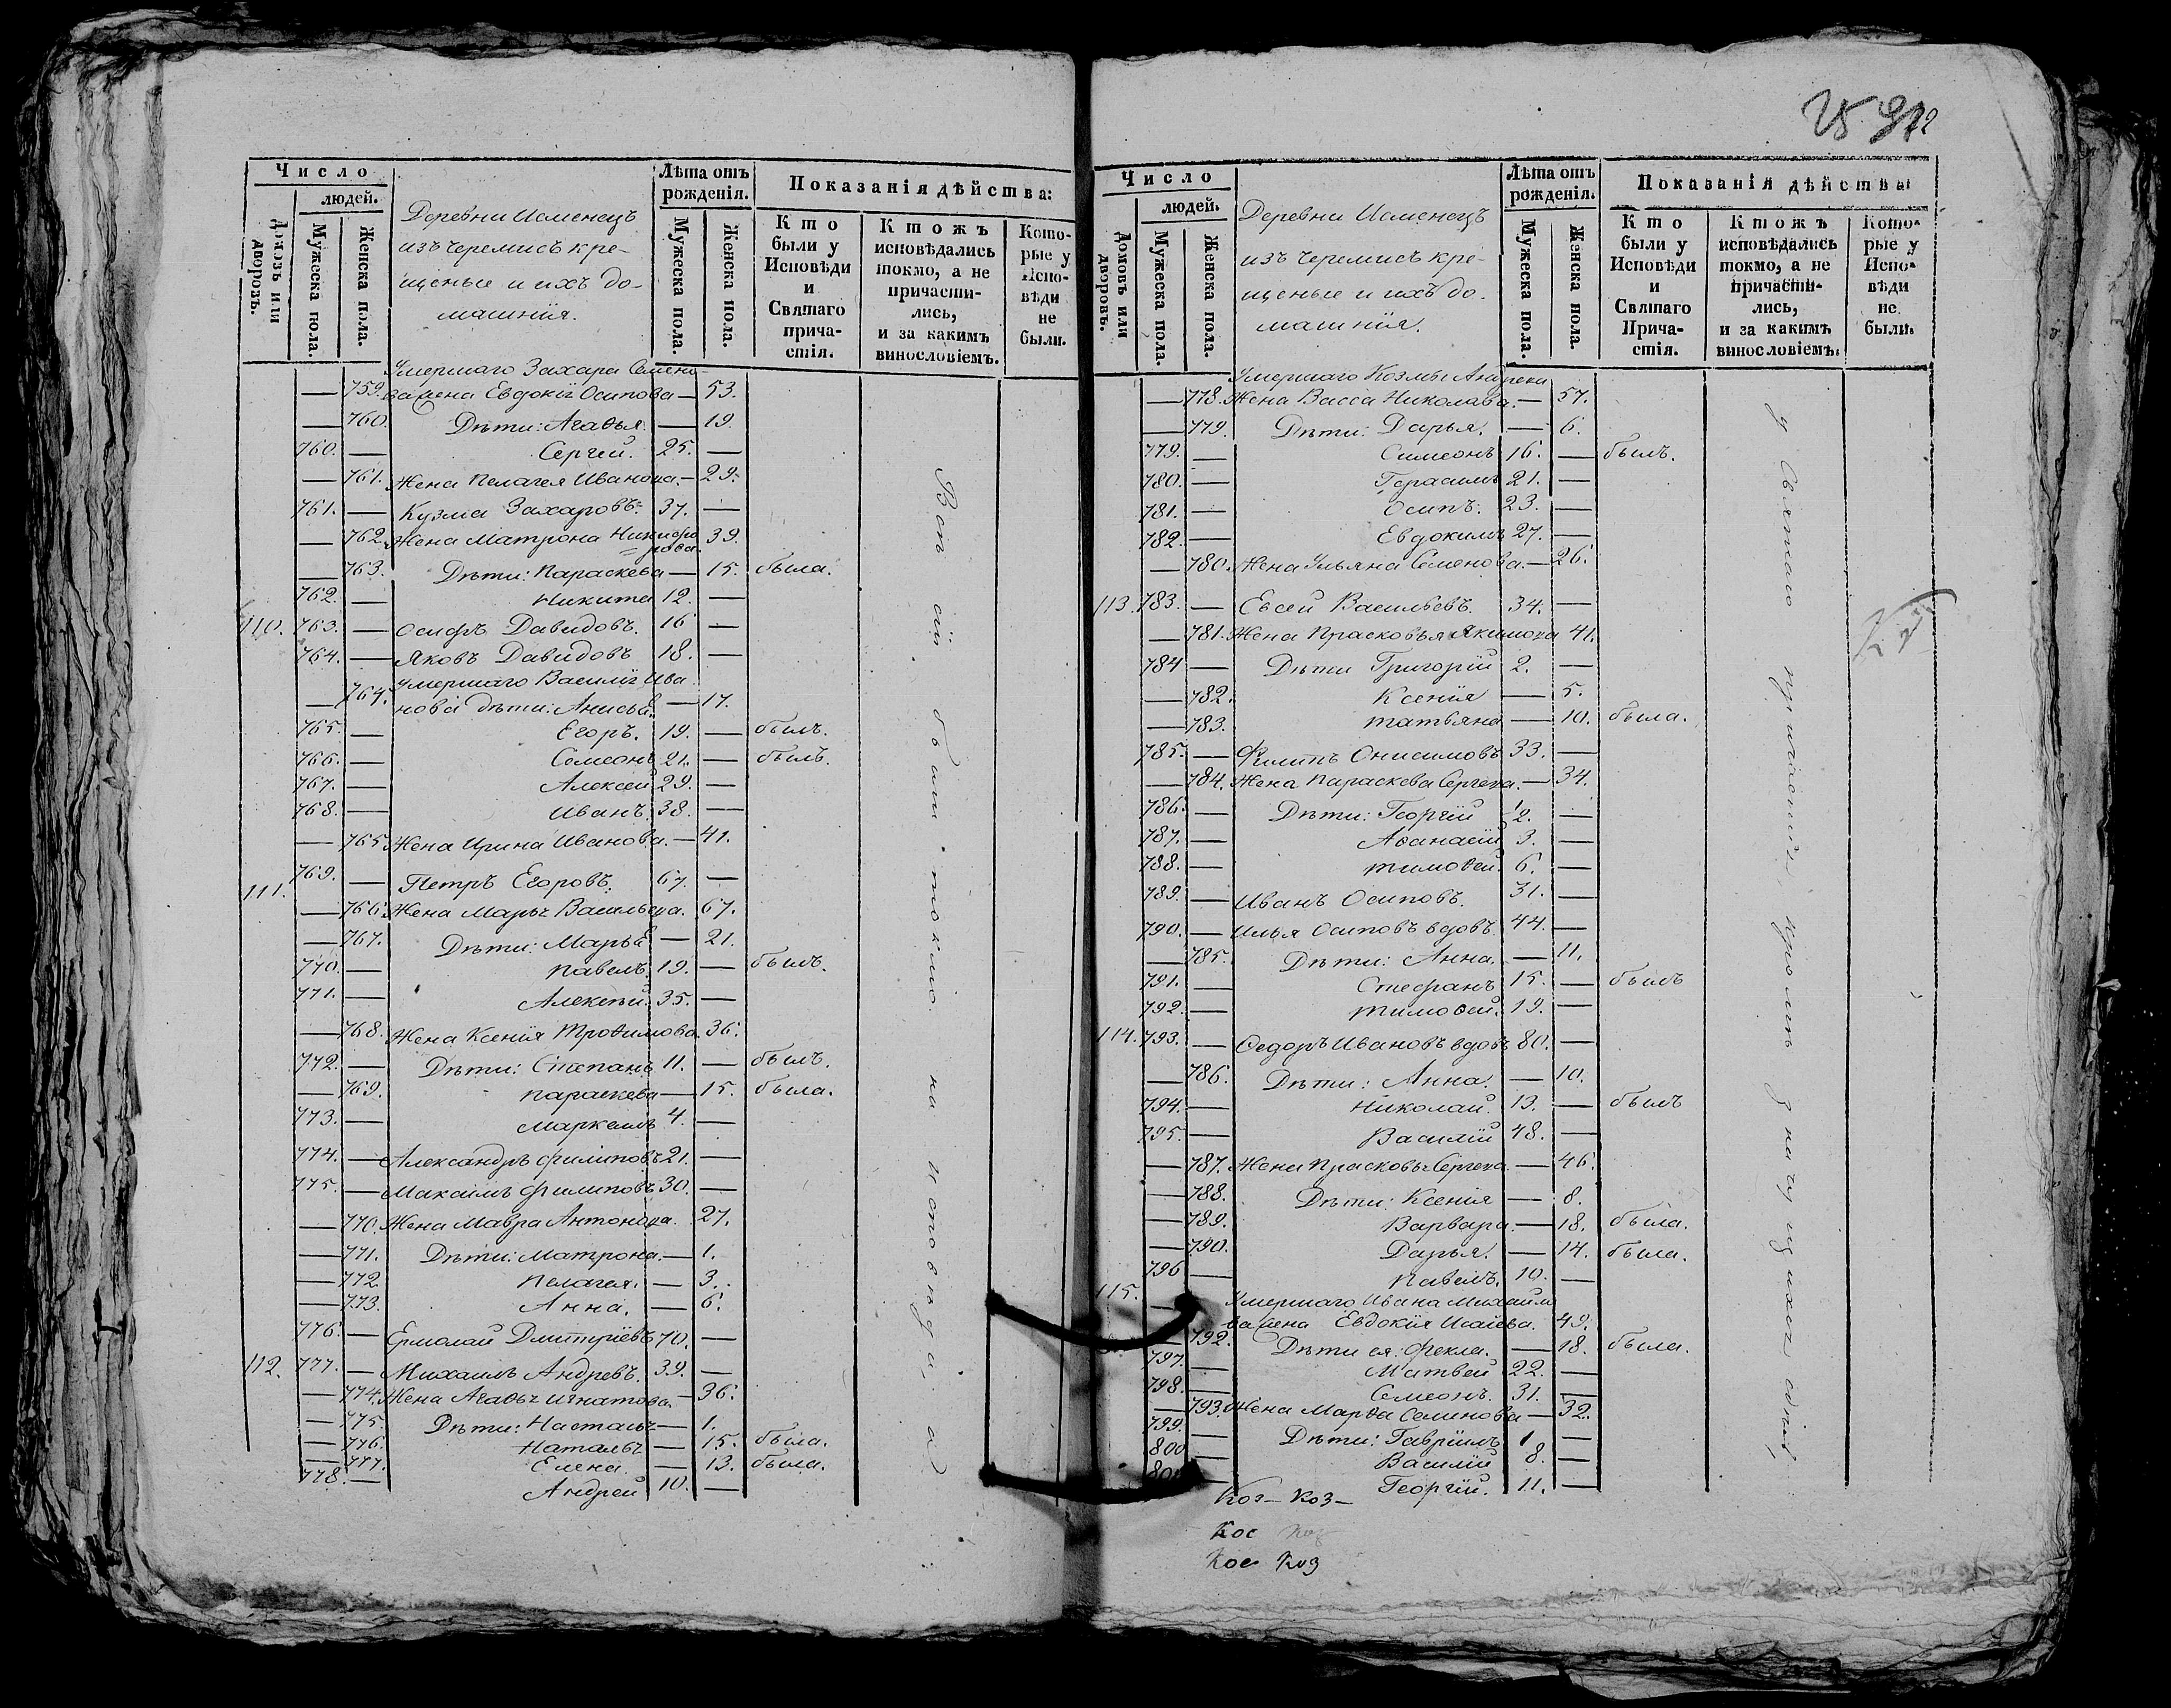 Число
людей.
Домовъ или дворовъ.
Мужеска пола.
Женска пола.
Деревни Исменецъ
изъ черемисъ кре-
щеные и ихъ до-
машнія.
Лѣта отъ рожденія.
Мужеска пола.
Женска пола.
Показанія дѣйства:
Кто были у Исповѣди и Святаго прича-стія.
Ктожъ исповѣдались токмо, а не причасти-лись, и за какимъ винословіемъ.
Кото-рые у Испо-вѣди не были.
Умершаго Захара Семено-
— 759. ва жена Евдокіѣ Осипова — 53.
— 760. Дѣти: Агаѳья. — 19.
760. — Сергей. 25. —
— 761. Жена Пелагея Иванова. — 29.
761. — Кузма Захаровъ. 37. —
— 762. Жена Матрона Никифо
рова. 39.
— 763. Дѣти: Параскева — 15. была.
762. — Никита 12. —
110. 763. — Осифъ Давидовъ. 16 —
764. — Яковъ Давидовъ 18. —
Умершаго Василіѣ Ива
— 764. нова дѣти: Анисьѣ. — 17.
765. — Егоръ. 19. — былъ.
766. — Семеонъ 21. — былъ.
767. — Алексей 29. —
768. — Иванъ. 38. —
— 765. Жена Ирина Иванова. — 41.
111. 769. — Петръ Егоровъ. 67. —
— 766. Жена Марьѣ Васильева. 67.
— 767. Дѣти: Марьѣ — 21.
770. — Павелъ. 19. — былъ.
771. — Алексѣй. 35. —
— 768. Жена Ксенія Троѳимова. 36.
772. — Дѣти: Степанъ 11. — былъ.
— 769. Параскева — 15. была.
773. — Маркелъ 4. —
774. — Александръ Филиповъ 21. —
775. — Максимъ Филиповъ 30. —
— 770. Жена Мавра Антонова. 27.
— 771. Дѣти: Матрона. — 1.
— 772. Пелагея. — 3.
— 773. Анна. — 6.
776. — Ермолай Дмитріевъ 70. —
112. 777. — Михаилъ Андревъ. 39. —
— 774. Жена Агаѳьѣ Игнатова. — 36.
— 775. Дѣти: Настасьѣ — 1.
— 776. Натальѣ — 15. была.
— 777. Елена. — 13. была.
778. — Андрей 10. —
Вси сіи были токмо на исповѣди, а
Число
людей.
Домовъ или дворовъ.
Мужеска пола.
Женска пола.
Деревни Исменецъ
изъ черемисъ кре-
щеные и ихъ до-
машнія.
Лѣта отъ рожденія.
Мужеска пола.
Женска пола.
Показанія дѣйства
Кто были у Исповѣди и Святаго Прича-стія.
Ктожъ исповѣдались токмо, а не причасти-лись, и за какимъ винословіемъ.
Кото-рые у Испо-вѣди не были.
Умершаго Козмы Андреева
— 778. Жена Васса Николава. — 57.
— 779. Дѣти: Дарья. — 6.
779. — Симеонъ 16. — былъ.
780. — Герасимъ 21. —
781. — Осипъ. 23. —
782. — Евдокимъ 27. —
— 780. Жена Ульяна Семенова. — 26.
113. 783. — Евсей Васильевъ. 34. —
— 781. Жена Прасковья Якимова 41.
784 — Дѣти Григорій 2. —
— 782. Ксенія — 5.
— 783. Татьяна — 10. была.
785. — Филипъ Онисимовъ 33. —
— 784. Жена Параскева Сергева. — 34.
786. — Дѣти: Георгій ½. —
787. — Аѳанасій 3. —
788. — Тимоѳей. 6. —
789. — Иванъ Осиповъ. 31. —
790. — Илья Осиповъ вдовъ. 44. —
— 785. Дѣти: Анна. — 11.
791. — Стефанъ 15. — былъ
792. — Тимоѳей. 19. —
114. 793. — Ѳедоръ Ивановъ вдовъ 80. —
— 786. Дѣти: Анна. — 10.
794. — Николай. 13. — былъ
795. — Василій 48. —
— 787. Жена Прасковьѣ Сергева. — 46.
— 788. Дѣти: Ксенія — 8.
— 789. Варвара. — 18. была.
— 790. Дарья. — 14. была.
796 — Павелъ. 10. —
115. Умершаго Ивана Михайло
ва жена Евдокія Исаіева. 49.
— 792. Дѣти ея: Ѳекла. — 18. была.
797. — Матвей 22. —
798. — Семеонъ. 31. —
— 793. Жена Марѳа Семинова — 32.
799. — Дѣти: Гавріилъ 1 —
800 — Василій 8. —
801 Георгій. 11. —
у Святаго причастія кромѣ значущихся
Кос Коз
Кос Коз